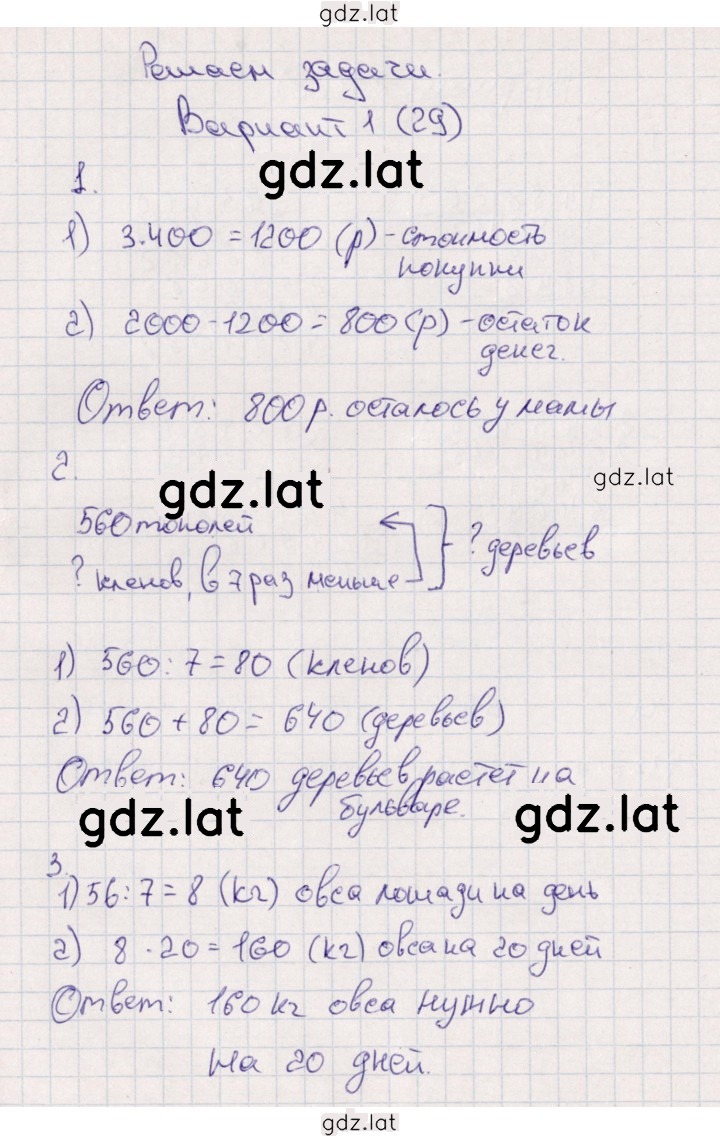 gdz.lat
Решаем задачи.
Вариант 1 (29)
gdz.lat
1.
1) 3·400 = 1200 (р) - стоимость
покупки
2) 2000 - 1200 = 800 (р) - остаток
денег.
Ответ: 800 р. осталось у мамы
2.
gdz.lat
gdz.lat
560 тополей
? кленов, в 7 раз меньше
? деревьев
1) 560 : 7 = 80 (кленов)
2) 560 + 80 = 640 (деревьев)
Ответ: 640 деревьев растет на
бульваре.
gdz.lat
gdz.lat
3.
1) 56 : 7 = 8 (кг) овса лошади на день
2) 8 · 20 = 160 (кг) овса на 20 дней
Ответ: 160 кг овса нужно
на 20 дней.
gdz.lat